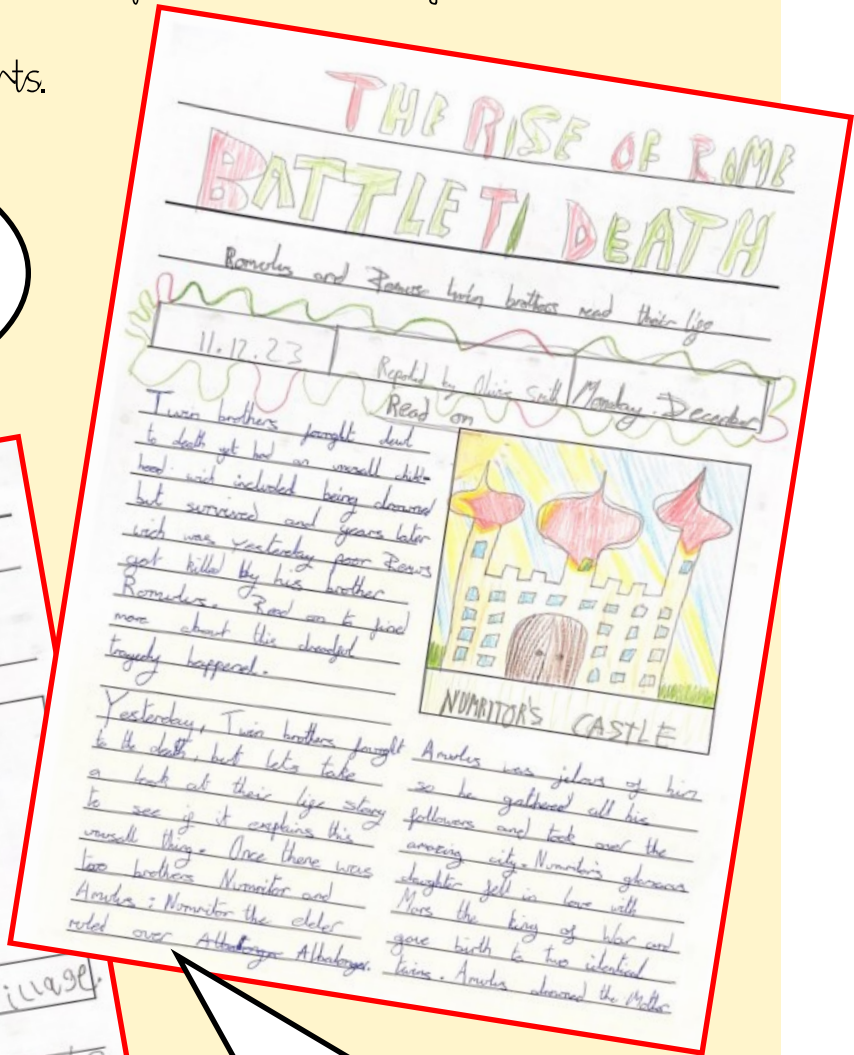 nts.
THE RISE OF ROME
BATTLE TI DEATH
Romulus and Remus twin brothers read their life
11.12.23
Reported by Olivia Smith
Monday December
Read on
Twin brothers fought
to death yet had an unusall child-
hood wich included being drowned
but survived and years later
wich was yesterday poor Remus
got killed by his brother
Romulus. Read on to find
more about this dreadful
tragedy happened.
NUMRITOR'S CASTLE
Yesterday, Twin brothers fought
to the death, but lets take
a look at their life story
to see if it explains this
unusall thing. Once there was
two brothers Numritor and
Amulus: Numritor the elder
ruled over Albalonga.
Amulus was jelous of him
so he gathered all his
followers and took over the
amazing city. Numritor's glamorous
daughter fell in love with
Mars the king of War and
gave birth to two identical
twins. Amulus drowned the Mother
illage.